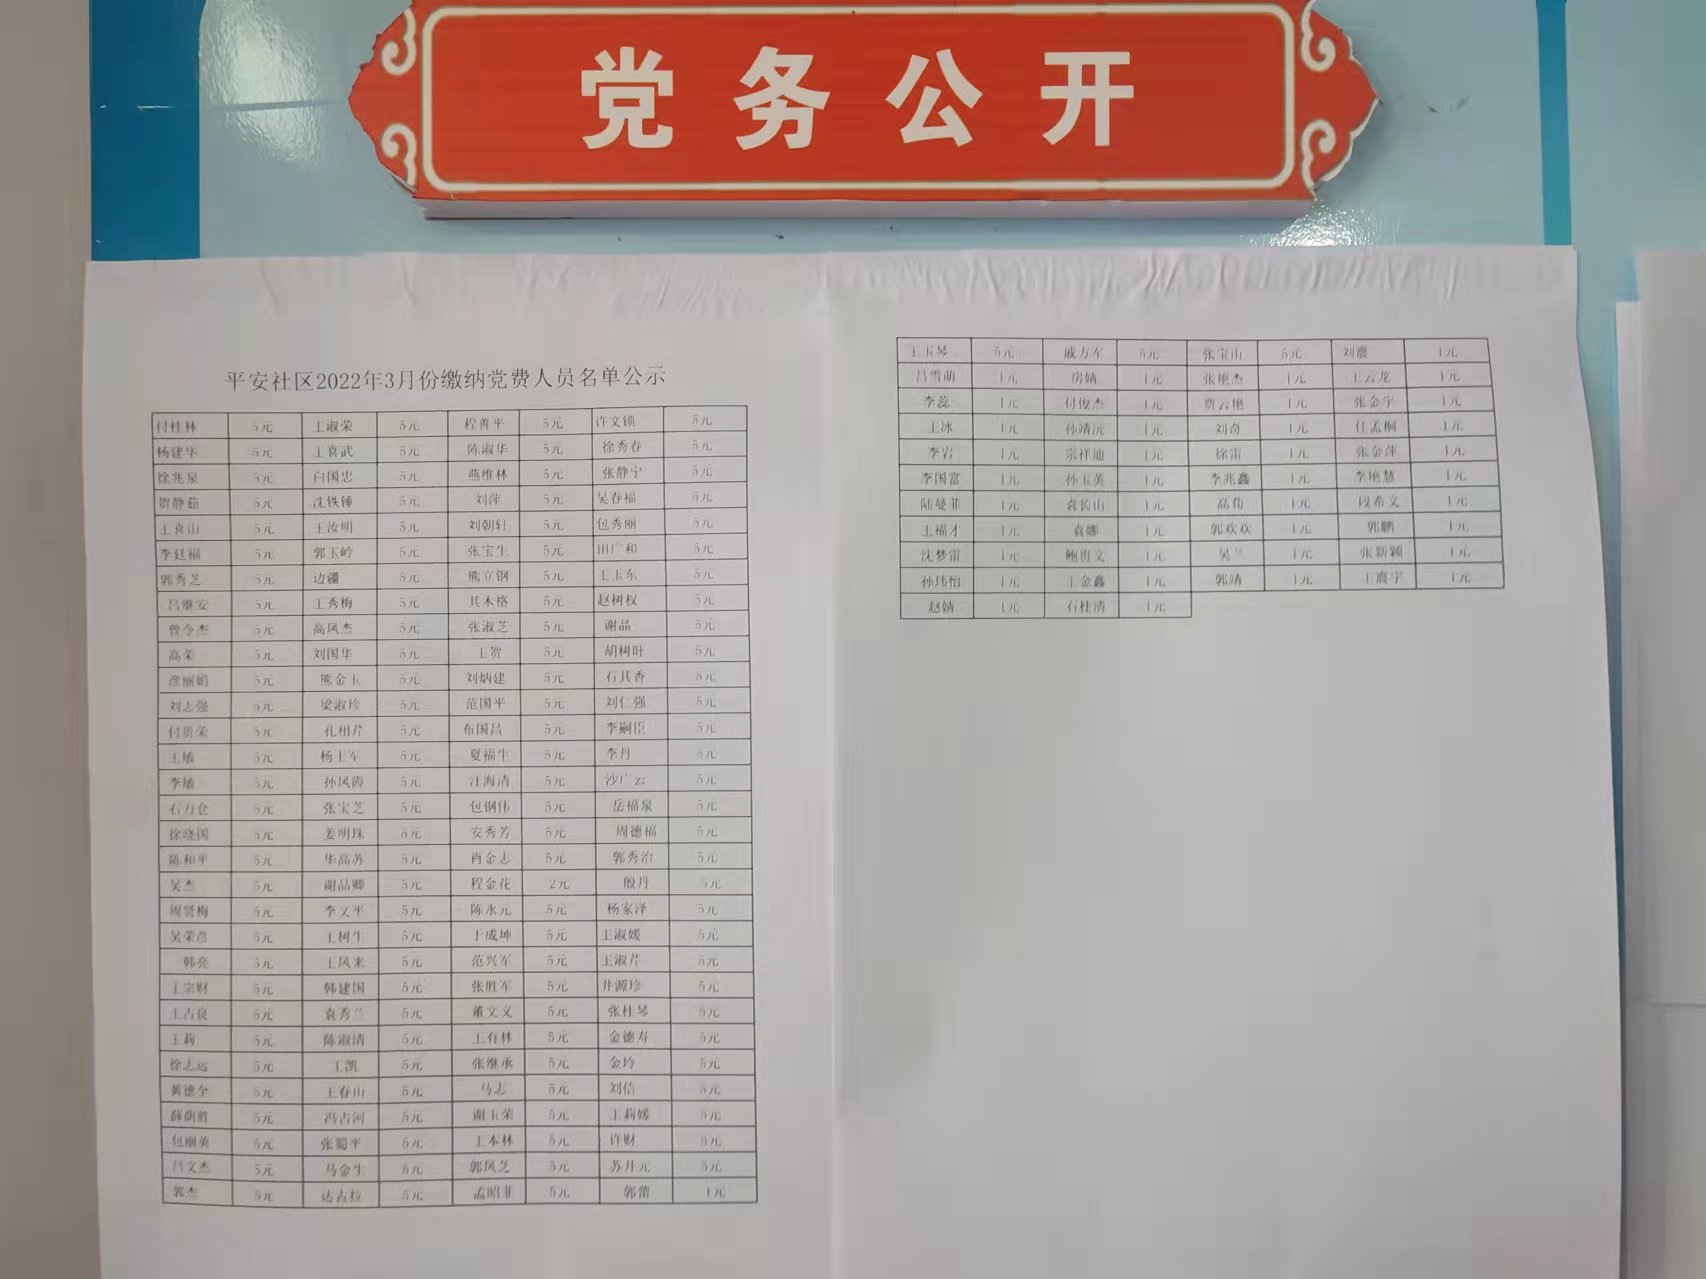 党务公开
平安社区2022年3月份缴纳党费人员名单公示
付桂林 5元 王淑荣 5元 程善平 5元 许文锁 5元
杨建华 5元 王喜武 5元 陈淑华 5元 徐秀春 5元
徐兆泉 5元 白国忠 5元 燕维林 5元 张静宁 5元
贺静茹 5元 沈铁锤 5元 刘萍 5元 吴春福 5元
王喜山 5元 王汝明 5元 刘朝轩 5元 包秀丽 5元
李廷福 5元 郭玉岭 5元 张宝生 5元 田广和 5元
郭秀芝 5元 边疆 5元 熊立钢 5元 王玉东 5元
吕维安 5元 王秀梅 5元 其木格 5元 赵树权 5元
曾令杰 5元 高凤杰 5元 张淑芝 5元 谢晶 5元
高荣 5元 刘国华 5元 王贺 5元 胡树叶 5元
彦丽娟 5元 熊金玉 5元 刘炳建 5元 石其香 5元
刘志强 5元 梁淑珍 5元 范国平 5元 刘仁强 5元
付贵荣 5元 孔相芹 5元 布国昌 5元 李嗣臣 5元
王敏 5元 杨士军 5元 夏福生 5元 李丹 5元
李敏 5元 孙凤霞 5元 汪海清 5元 沙广云 5元
石万仓 5元 张宝芝 5元 包钢伟 5元 岳福泉 5元
徐晓国 5元 姜明珠 5元 安秀芳 5元 周德福 5元
陈和平 5元 华高苏 5元 肖金志 5元 郭秀治 5元
吴杰 5元 谢品卿 5元 程金花 2元 殷丹 5元
周贤梅 5元 李文平 5元 陈永元 5元 杨家泽 5元
吴荣彦 5元 王树生 5元 于成坤 5元 王淑媛 5元
韩亮 5元 王凤来 5元 范兴军 5元 王淑芹 5元
王宗财 5元 韩建国 5元 张胜军 5元 井源珍 5元
王占良 5元 袁秀兰 5元 董文义 5元 张桂琴 5元
王莉 5元 陈淑清 5元 王有林 5元 金德寿 5元
徐志远 5元 王凯 5元 张继承 5元 金玲 5元
黄德全 5元 王春山 5元 马志 5元 刘信 5元
薛荫胜 5元 冯占河 5元 谢玉荣 5元 王莉媛 5元
包丽英 5元 张蜀平 5元 王本林 5元 许财 5元
吕文杰 5元 马金生 5元 郭凤芝 5元 苏井元 5元
郭杰 5元 达古拉 5元 孟昭菲 5元 郭蕾 1元
王玉琴 5元 戚万军 5元 张宝山 5元 刘震 1元
吕雪萌 1元 房婧 1元 张艳杰 1元 王云龙 1元
李蕊 1元 付俊杰 1元 贾云艳 1元 张金宇 1元
王冰 1元 孙靖沅 1元 刘奇 1元 任孟桐 1元
李岩 1元 宗祥迪 1元 徐雷 1元 张金萍 1元
李国富 1元 孙玉英 1元 李兆鑫 1元 李艳慧 1元
陆曼菲 1元 袁长山 1元 高荀 1元 段希文 1元
王福才 1元 袁娜 1元 郭欢欢 1元 郭鹏 1元
沈梦雷 1元 鲍贵文 1元 吴兰 1元 张新颖 1元
孙玮怡 1元 王金鑫 1元 郭靖 1元 王震宇 1元
赵婧 1元 石桂清 1元